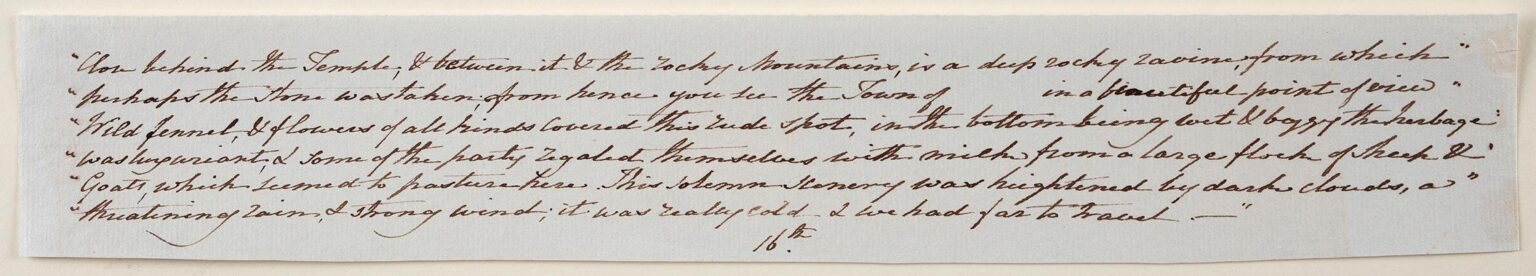 "Close behind the Temple, & between it & the rocky Mountains, is a deep rocky ravine, from which"
"perhaps the stone was taken; from hence you see the Town of in a beautiful point of view"
"Wild fennel, & flowers of all kinds covered this rude spot, in the bottom being wet & boggy the herbage"
"was luxuriant, & some of the party regaled themselves with milk from a large flock of sheep &"
"Goats, which seemed to pasture here. This solemn scenery was heightened by dark clouds, a"
"threatining rain, & strong wind; it was really cold & we had far to travel —"
16.th